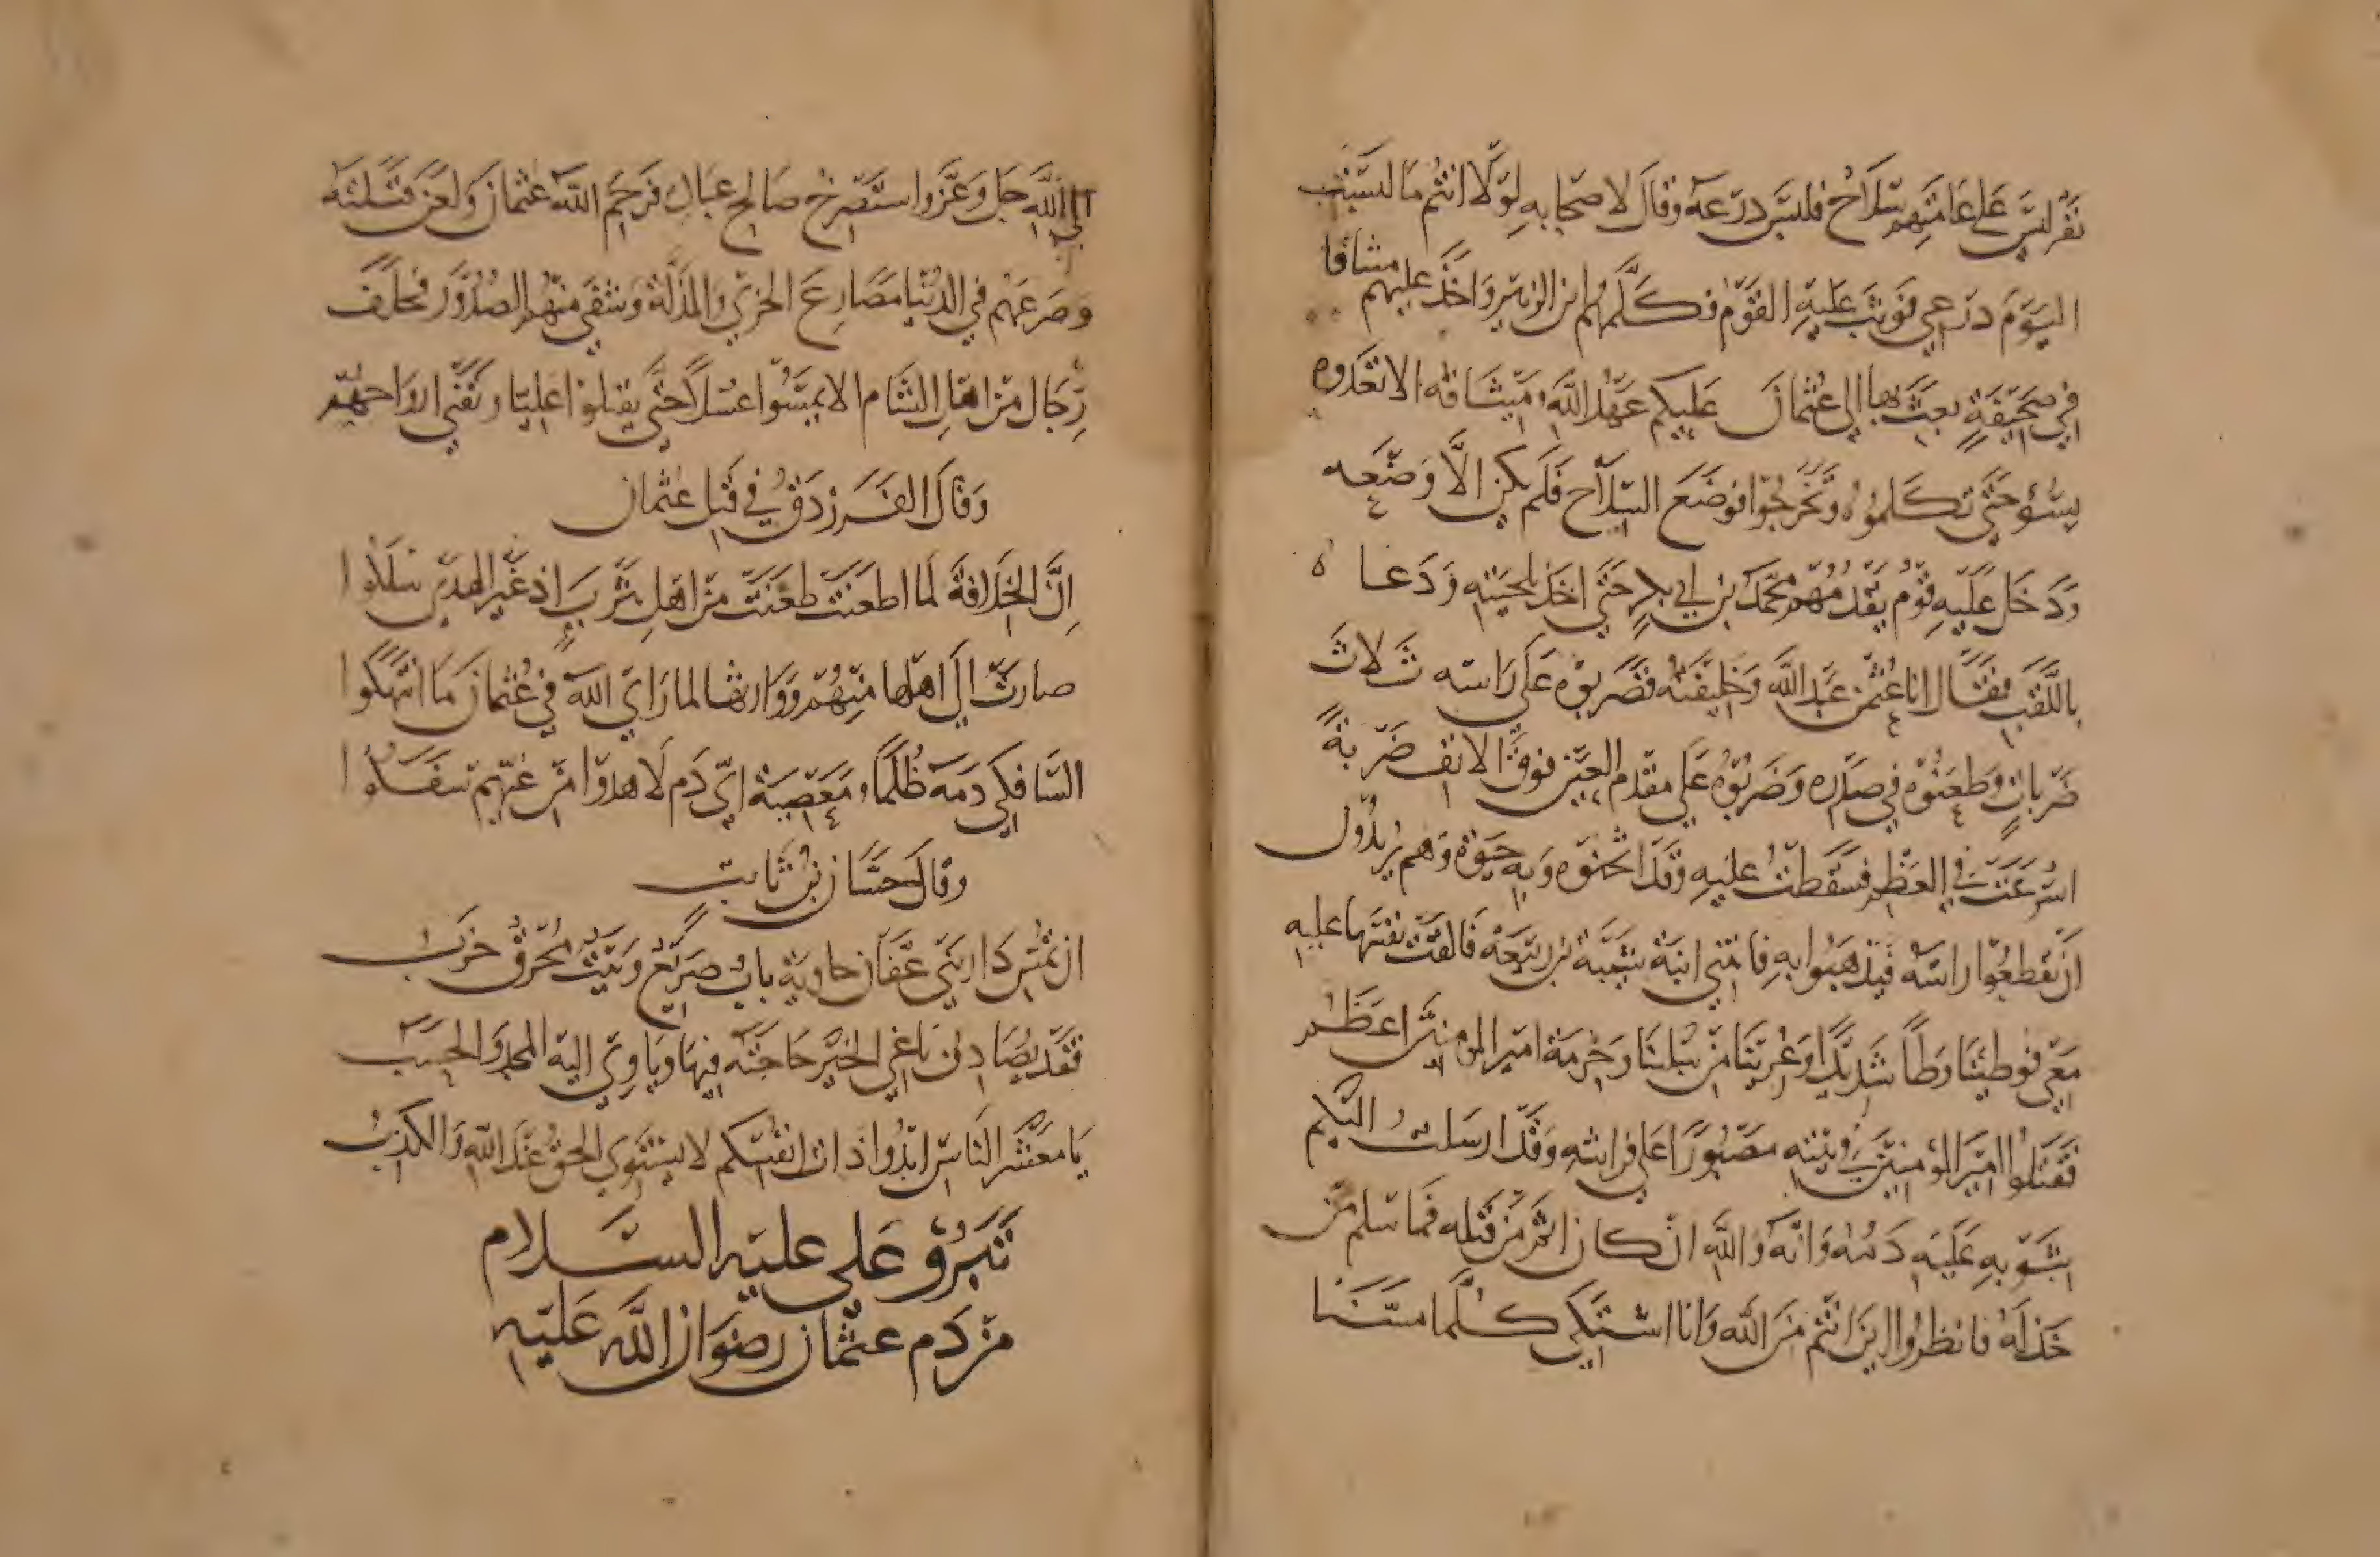 نَفَر ليسَ على عامّتِهم سِلَاحٌ فلبسَ درعَهُ وقالَ لاصحابهِ لولا انتُم ما لبستُ
اليَومَ درعي فَوثبَ عليهِ القوْم فكلَّمهُم ابن الزبير واخذ عليهم مشاقا
في صحيفةٍ بعثَ بها الى عثمانَ عليكم عهدُ اللهِ ومِيثاقهُ الا تعدوه
بسُوءٍ حتّى تكلموُه وتخرجوا فوضعَ السِّلاح فلَم يكن الّا وضعه
ودَخَل عليهِ قومٌ يقدُمُهم محمّد بن ابي بكرٍ حتّى اخذ بلحيتهِ ودَعاه
باللّقبِ فقال انا عُثمن عَبد اللهِ وخليفَتهُ فضربوهُ على راسه ثلاث
ضرباتٍ وطعنوهُ في صدره وضربوهُ على مقدم العين فوق الانف ضربةً
اسرعَت في العظم فسقطتُ عليهِ وقد اثخنوه وبهِ حيوة وهم يريدُون
ان يقطعُوا راسَهُ فيذهبُوا بهِ فاتتني ابنة شيبة بن ربيعة فالقت نفسَها عليهِ
معي فوطِئنا وطاً شديدًا وعُرّينا من ثيابنا وحُرمة امير المومنين اعظم
فقتلوا امير المؤمنين في بيته مصبورًا على فراشهِ وقد ارسلتُ اليكم
بثوبهِ عليهِ دمُه وانّهُ والله ان كان اثم من قتله فما سلم من
خذلهُ فانظروا اين انتُم من الله وانا اشتكي كلّما مسّنا
الى اللهِ جل وعزّ واستصرخ صالح عباده فرحم الله عثمان ولعن قتلته
وصرعهُم في الدُنيا مصارعَ الخزي والمذلّة وشفى منهُم الصُّدُور فحلف
رجال من اهل الشام الا يمسّوا غسلًا حتّى يقتلوا عليا وتفنى ارواحهم
وقال الفرزدقُ في قتل عثمان
انّ الخلافة لما اظعنت ظعنت من اهل يثرب اذ غير الهدى سلكوا
صارت الى اهلها منهُم ووارثها لما راى الله في عُثمانَ ما انتهكوا
السّافكي دمَه ظلمًا ومعصية اي دم لا هدوا من غيّهم سفكوا
وقال حسّان بن ثابت
ان تُمسِ دار بني عفّان خاوية باب صريع وبيت مُحرق خرب
فقد يُصادف باغي الخير حاجتَه فيها وياوي اليه المجد والحسب
يا معشر الناس ابدُوا ذات انفُسكم لا يستوي الحقُّ عند اللهِ والكذب
تبرُّؤ علي عليه السّلام
من دم عثمان رضوان الله عليه